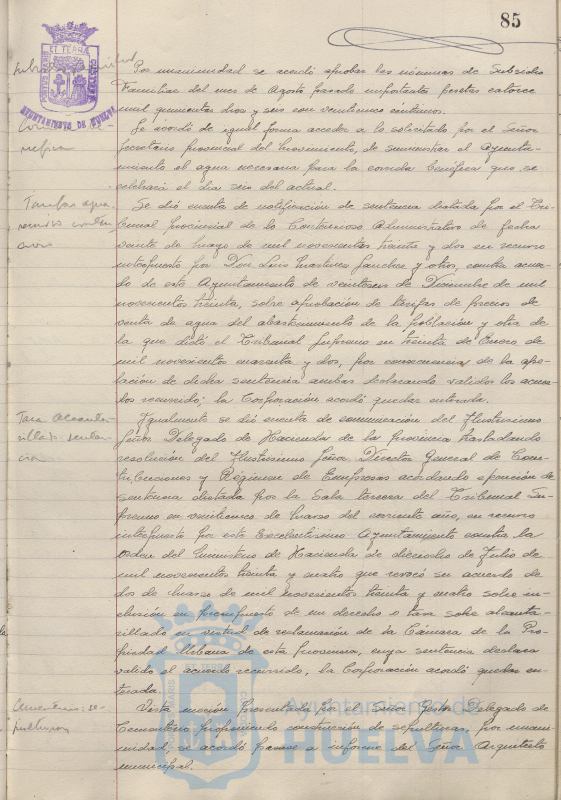 85
Por unanimidad se acordó aprobar las nóminas de Subsidio
Familiar del mes de Agosto pasado importante pesetas catorce
mil quinientas dos y seis con veinticinco céntimos.
Se acordó de igual forma acceder a lo solicitado por el Señor
Secretario provincial del Movimiento, de suministrar el Ayunta-
miento el agua necesaria para la corrida benéfica que se
celebrará el día seis del actual.
Tarifas agua
recurso conten
cioso
Se dió cuenta de notificación de sentencia dictada por el Tri-
bunal provincial de lo Contencioso Administrativo de fecha
veinte de mayo de mil novecientos treinta y dos en recurso
interpuesto por Don Luis Martinez Sanchez y otros, contra acuer-
do de este Ayuntamiento de veintiseis de Diciembre de mil
novecientos treinta, sobre aprobación de tarifas de precios de
venta de agua del abastecimiento de la población y otra de
la que dictó el Tribunal Supremo en treinta de Enero de
mil novecientos cuarenta y dos, por consecuencia de la ape-
lación de dicha sentencia ambas declarando validos los acuer-
dos recurridos: la Corporación acordó quedar enterada.
Tasa Alcanta-
rillado senten-
cia
Igualmente se dió cuenta de comunicación del Ilustrisimo
Señor Delegado de Hacienda de la provincia trasladando
resolución del Ilustrisimo Señor Director General de Con-
tribuciones y Régimen de Empresas acordando ejecución de
sentencia dictada por la Sala tercera del Tribunal Su-
premo en veinticinco de Marzo del corriente año, en recurso
interpuesto por este Excelentísimo Ayuntamiento contra la
Orden del Ministerio de Hacienda de dieciocho de Julio de
mil novecientos treinta y cuatro que revocó su acuerdo de
dos de Marzo de mil novecientos treinta y cuatro sobre in-
clusión en presupuesto de un derecho o tasa sobre alcanta-
rillado en virtud de reclamación de la Cámara de la Pro-
piedad Urbana de esta provincia, cuya sentencia declara
valido el acuerdo recurrido, la Corporación acordó quedar en-
terada.
Cementerio se-
pulturas
Vista moción presentada por el Señor Gestor Delegado de
Cementerio proponiendo construcción de sepulturas, por unani-
midad, se acordó pasase a informe del Señor Arquitecto
municipal.
AYUNTAMIENTO DE HUELVA
Ayuntamiento de
HUELVA